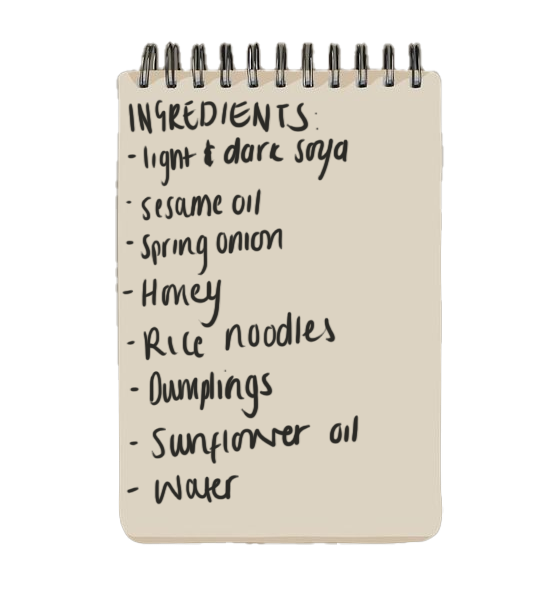 INGREDIENTS:
- light & dark soya
- sesame oil
- spring onion
- Honey
- Rice noodles
- Dumplings
- Sunflower oil
- Water